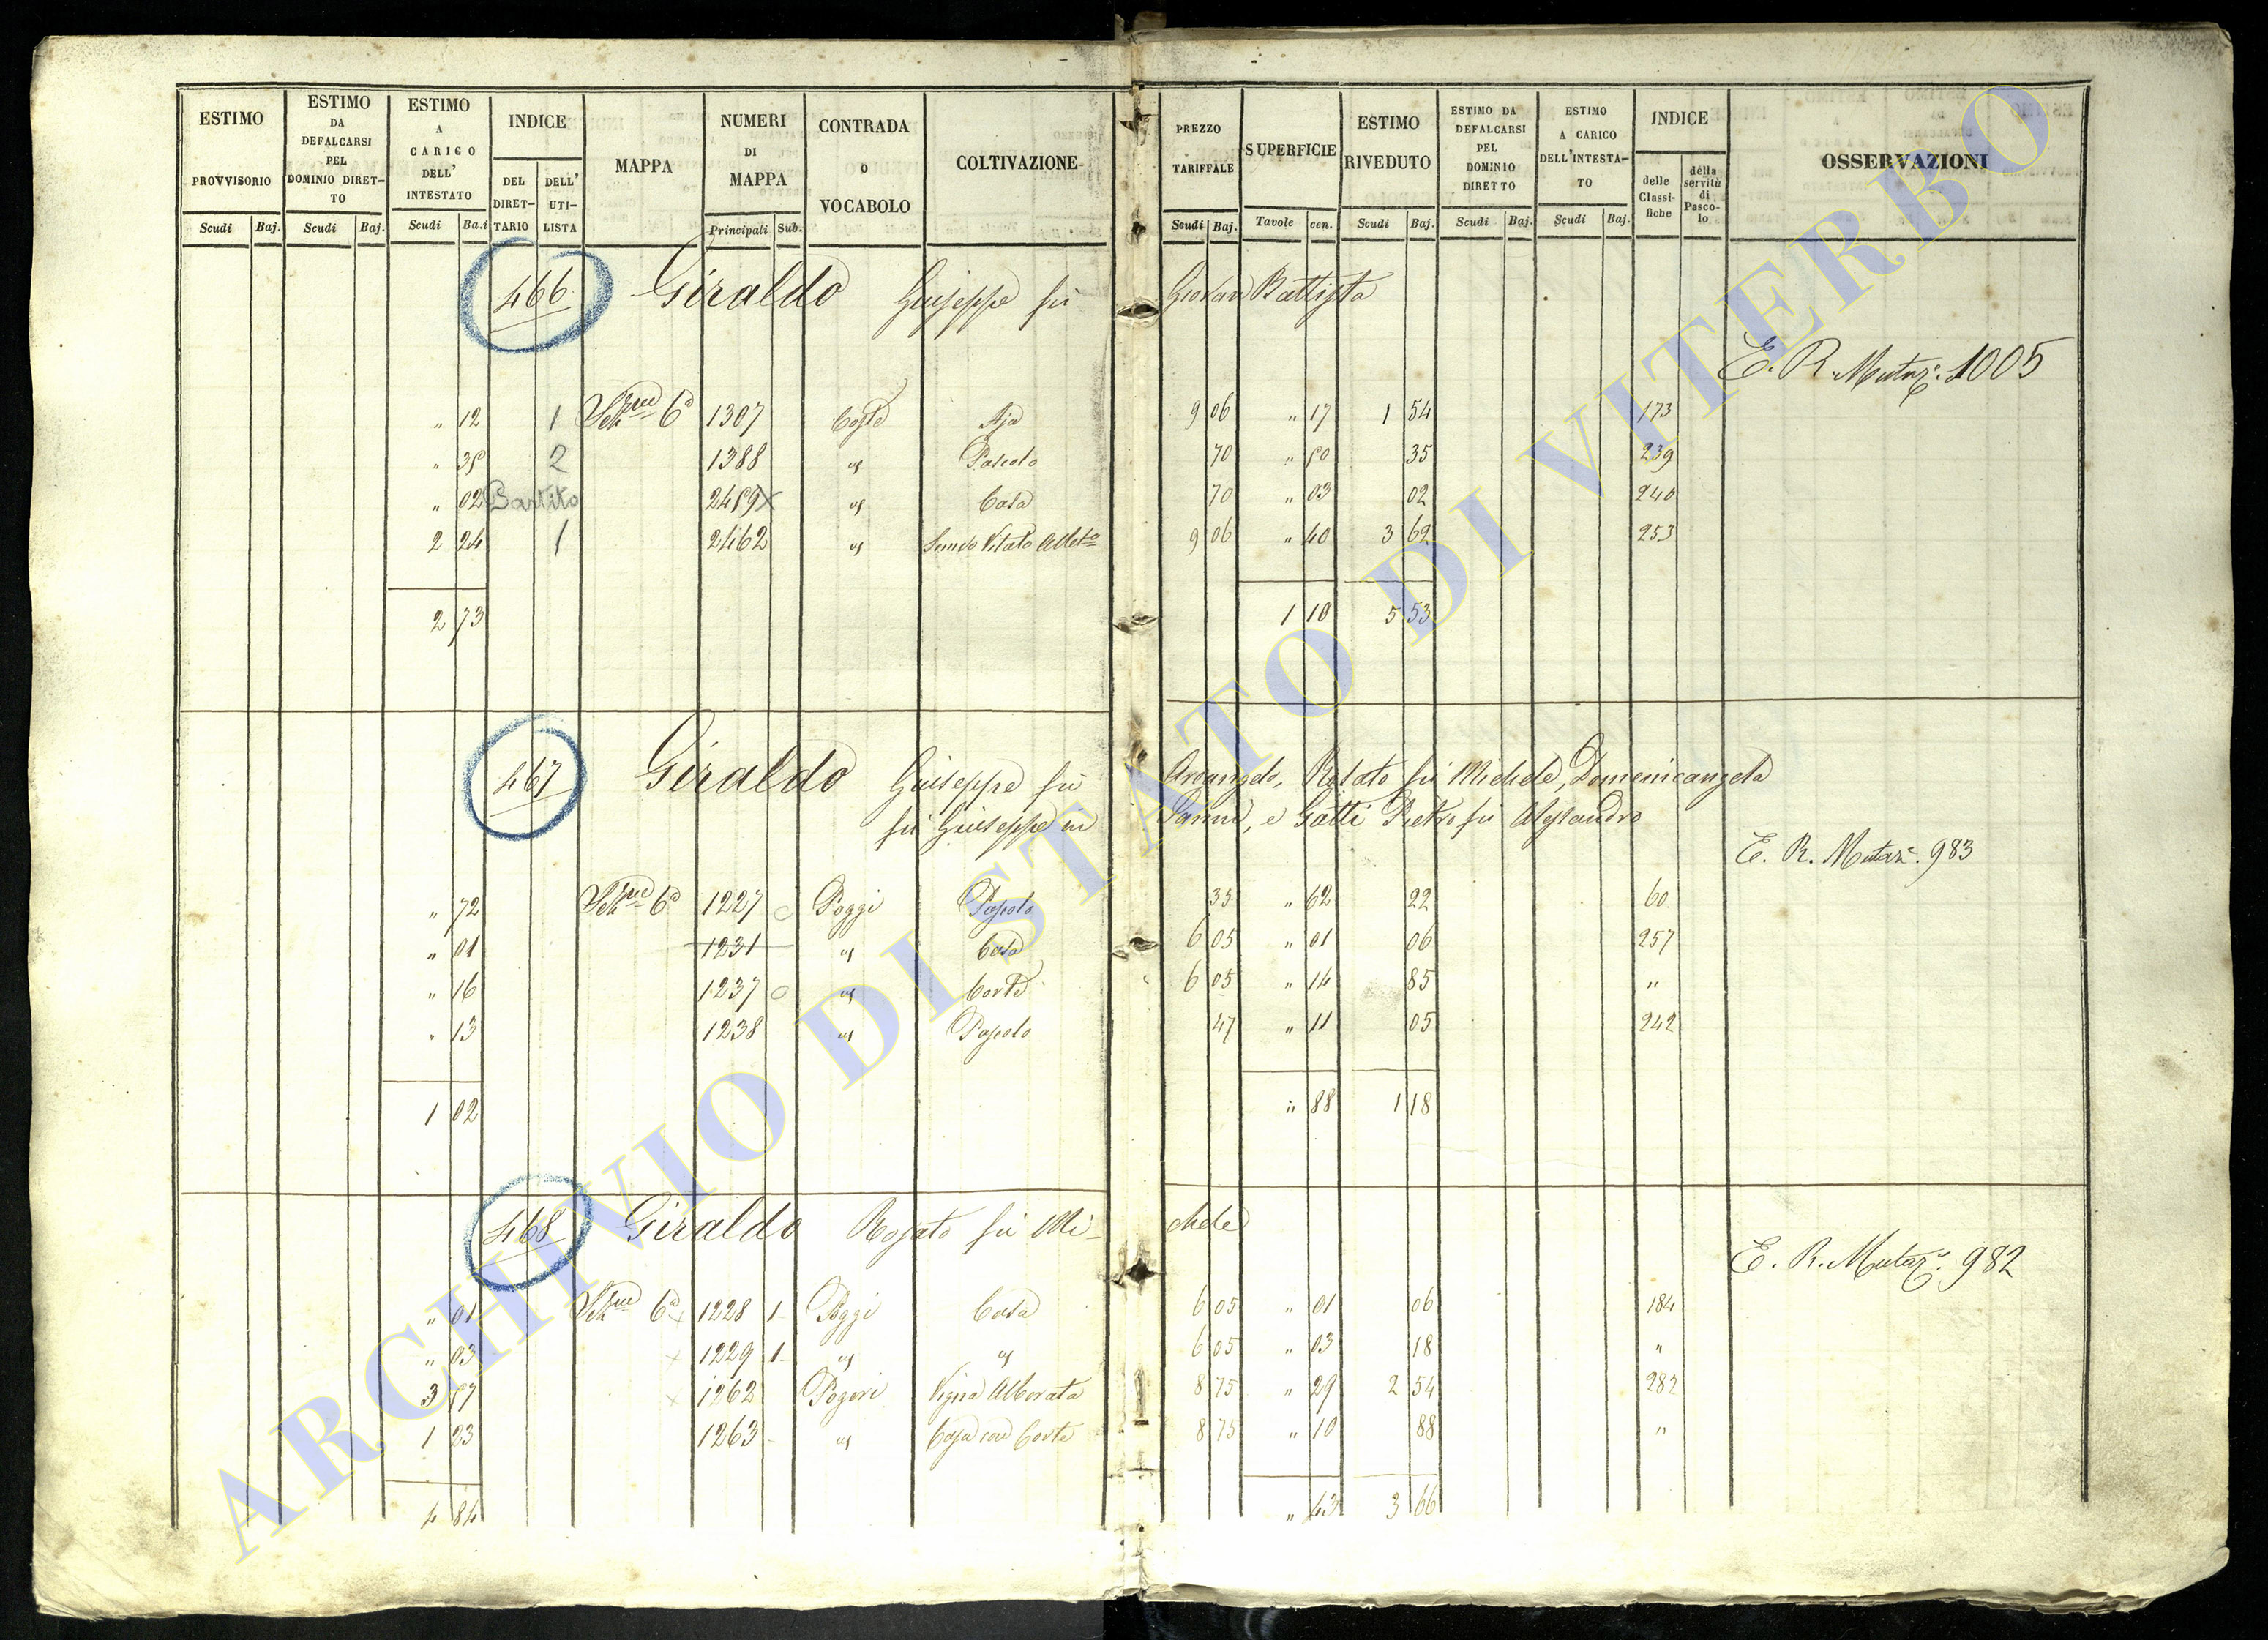 ESTIMO PROVVISORIO
ESTIMO DA DEFALCARSI PEL DOMINIO DIRET-TO
ESTIMO A CARICO DELL' INTESTATO
INDICE
DEL DIRET-TARIO
DELL' UTI-LISTA
MAPPA
NUMERI DI MAPPA
CONTRADA o VOCABOLO
COLTIVAZIONE
PREZZO TARIFFALE
SUPERFICIE
ESTIMO RIVEDUTO
ESTIMO DA DEFALCARSI PEL DOMINIO DIRETTO
ESTIMO A CARICO DELL'INTESTA-TO
INDICE
delle Classi-fiche
della servitù di Pasco-lo
OSSERVAZIONI
Scudi Baj. Scudi Baj. Scudi Ba.i Principali Sub. Scudi Baj. Tavole cen. Scudi Baj. Scudi Baj. Scudi Baj.
466 Giraldo Giuseppe fù Giovan Battista
E. R. Mutaz. 1005
" 12 1 Sez.ne 6a 1307 Coste Aja 9 06 " 17 1 54 173
" 35 2 1388 Pascolo 70 " 50 35 239
" 02 Partito 2459 x Casa 70 " 03 02 240
2 24 1 2462 Vitato 9 06 " 40 3 62 253
2 73 1 10 5 53
467 Giraldo Giuseppe fù Arcangelo, Rosato fù Michele, Domenicangela
fù Giuseppe in Janni, e Gatti Pietro fù Alessandro
E. R. Mutaz. 983
" 72 Sez.ne 6a 1227 Poggi Pascolo 35 " 62 22 60
" 01 1231 Casa 6 05 " 01 06 257
" 16 1237 Corte 6 05 " 14 85 "
" 13 1238 Pascolo 47 " 11 05 242
1 02 " 88 1 18
468 Giraldo Rosato fù Mi-chele
E. R. Mutaz. 982
" 01 Sez.ne 6a x 1228 1 Poggi Casa 6 05 " 01 06 184
" 03 x 1229 1 6 05 " 03 18 "
3 57 x 1262 Vigna Alborata 8 75 " 29 2 54 282
1 23 1263 Casa con Corte 8 75 " 10 88 "
4 84 " 43 3 66
ARCHIVIO DI STATO DI VITERBO